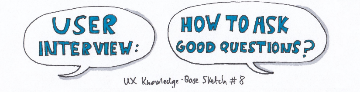 USER
INTERVIEW:
HOW TO ASK
GOOD QUESTIONS?
UX Knowledge-Base Sketch #8